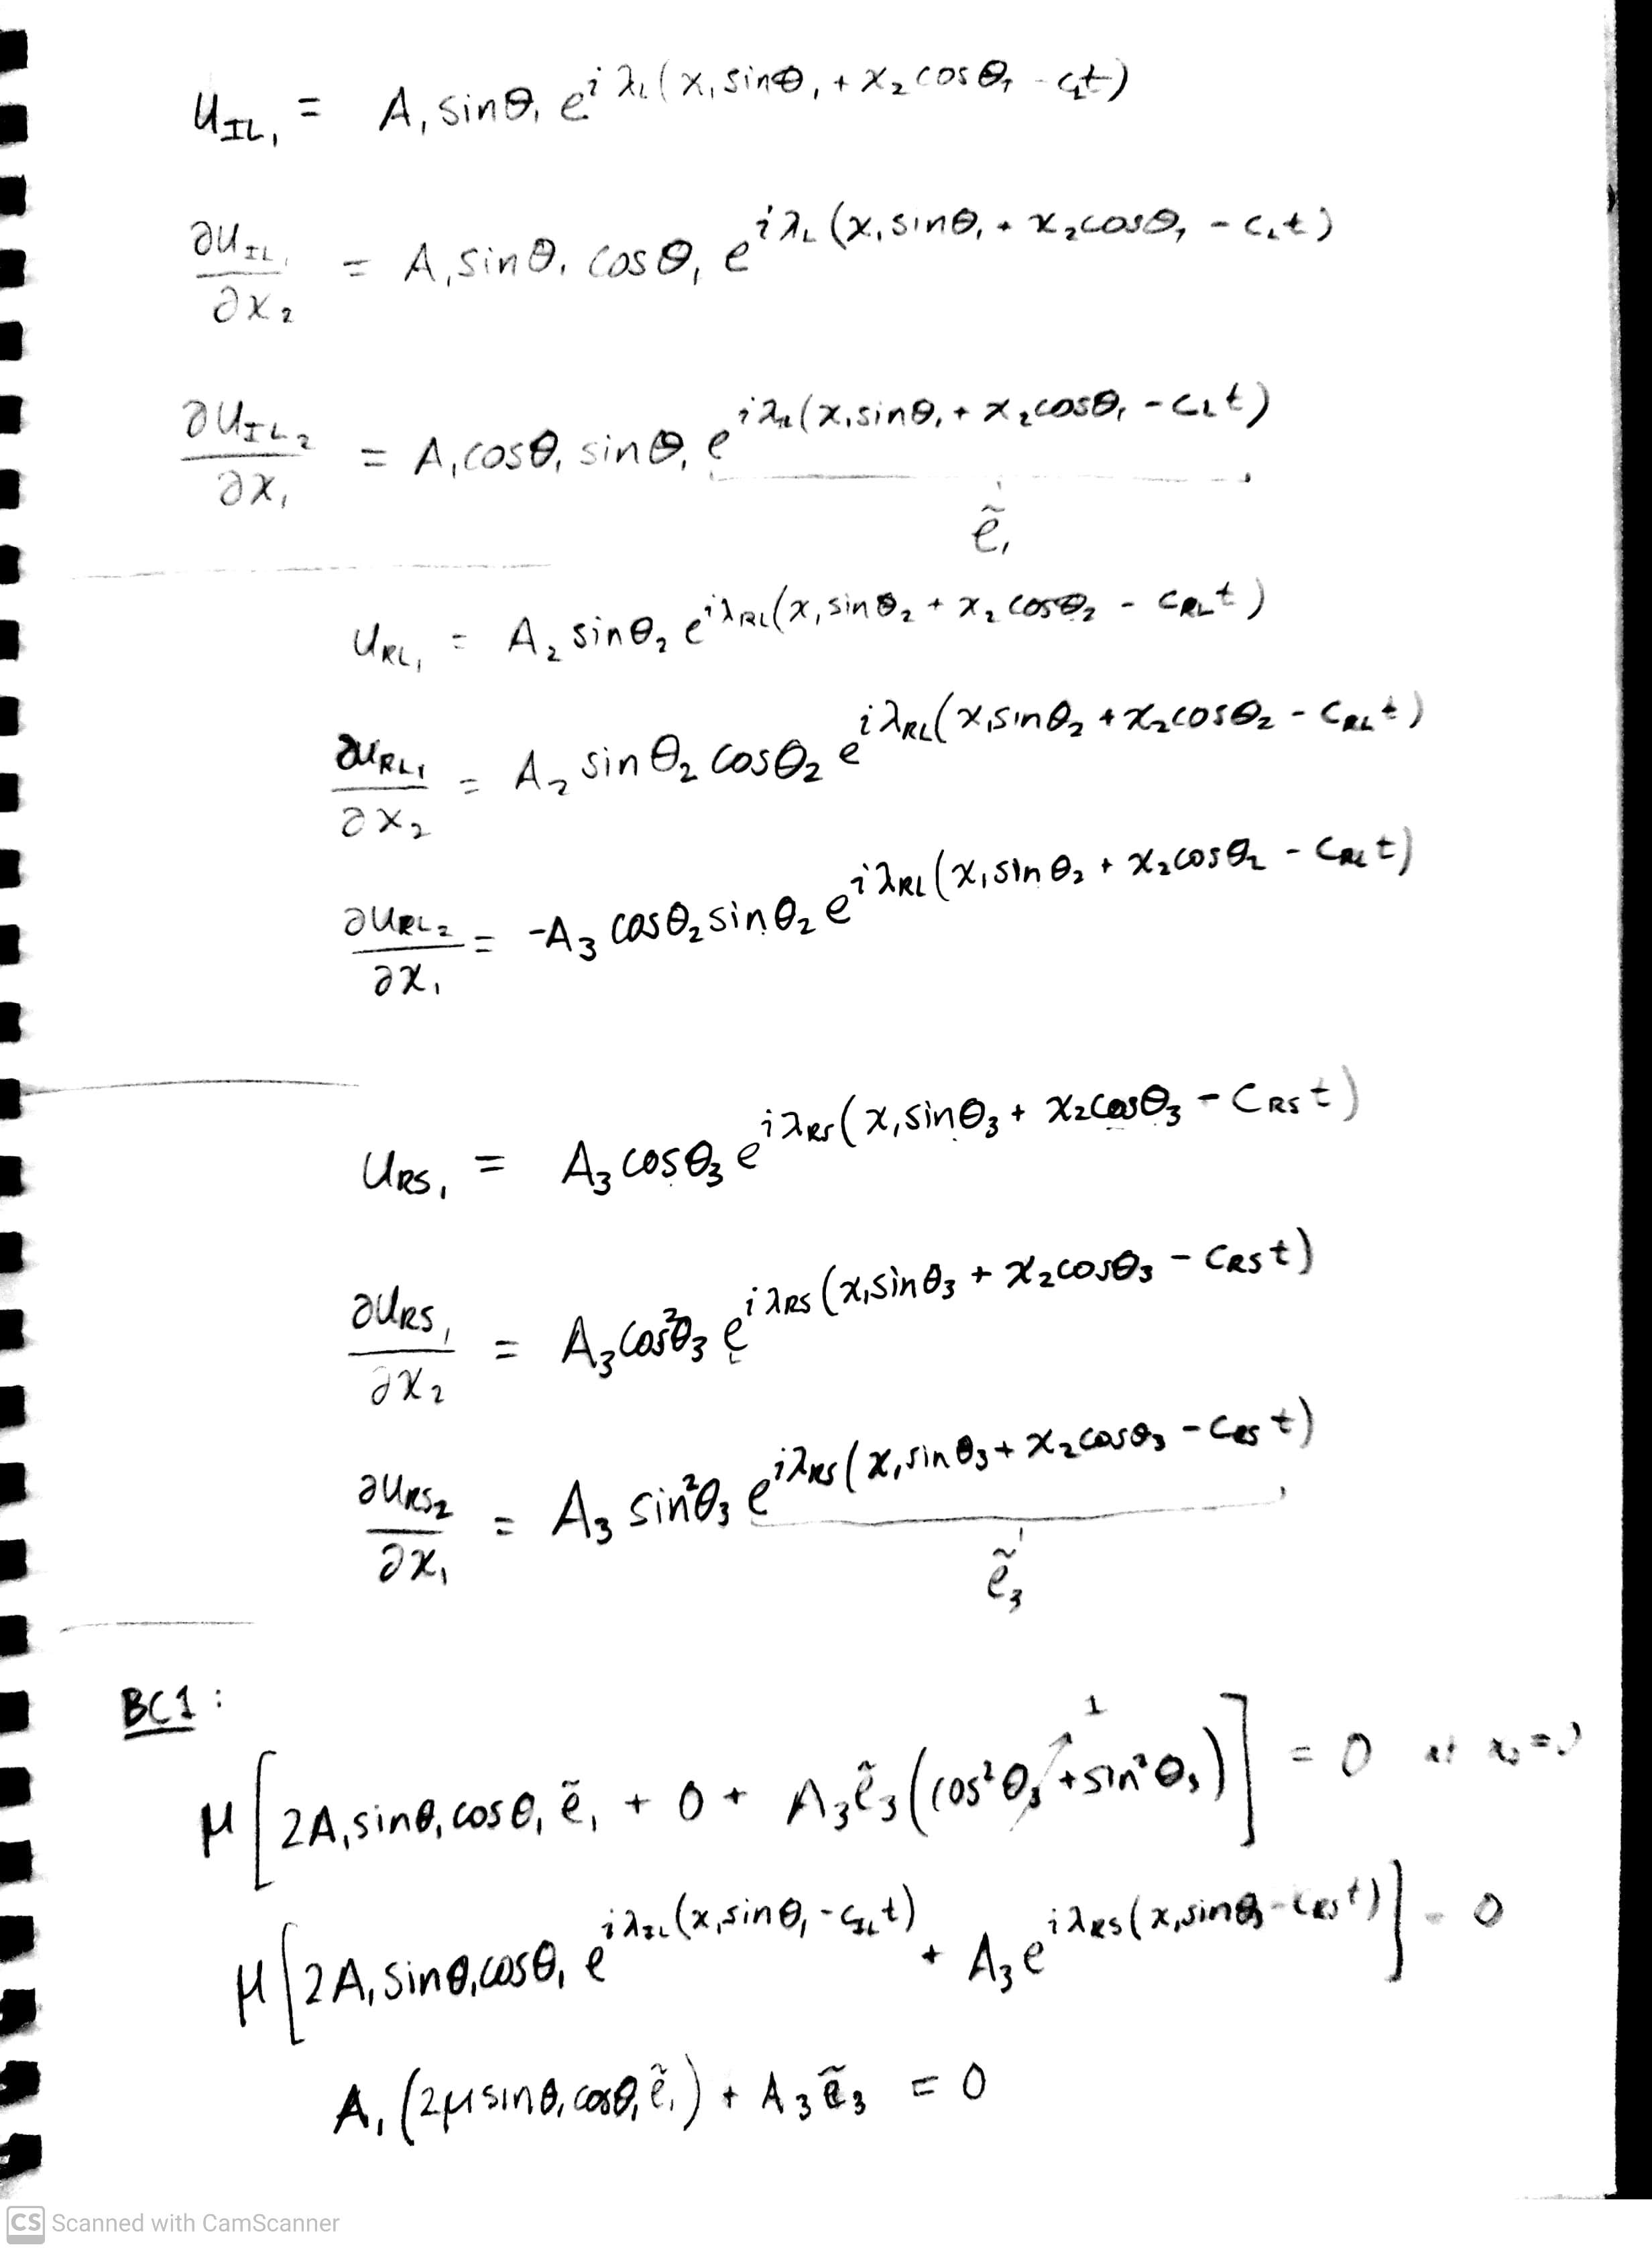 u_{IL_1} = A_1 sinθ_1 e^{iλ_L(x_1 sinθ_1 + x_2 cosθ_1 - c_L t)}
∂u_{IL_1}/∂x_2 = A_1 sinθ_1 cosθ_1 e^{iλ_L(x_1 sinθ_1 + x_2 cosθ_1 - c_L t)}
∂u_{IL_2}/∂x_1 = A_1 cosθ_1 sinθ_1 e^{iλ_{IL}(x_1 sinθ_1 + x_2 cosθ_1 - c_L t)}
ẽ_1
u_{RL_1} = A_2 sinθ_2 e^{iλ_{RL}(x_1 sinθ_2 + x_2 cosθ_2 - c_{RL} t)}
∂u_{RL_1}/∂x_2 = A_2 sinθ_2 cosθ_2 e^{iλ_{RL}(x_1 sinθ_2 + x_2 cosθ_2 - c_{RL} t)}
∂u_{RL_2}/∂x_1 = -A_3 cosθ_2 sinθ_2 e^{iλ_{RL}(x_1 sinθ_2 + x_2 cosθ_2 - c_{RL} t)}
u_{RS_1} = A_3 cosθ_3 e^{iλ_{RS}(x_1 sinθ_3 + x_2 cosθ_3 - c_{RS} t)}
∂u_{RS_1}/∂x_2 = A_3 cos²θ_3 e^{iλ_{RS}(x_1 sinθ_3 + x_2 cosθ_3 - c_{RS} t)}
∂u_{RS_2}/∂x_1 = A_3 sin²θ_3 e^{iλ_{RS}(x_1 sinθ_3 + x_2 cosθ_3 - c_{RS} t)}
ẽ_3
BC1 :
1
μ[2A_1 sinθ_1 cosθ_1 ẽ_1 + 0 + A_3 ẽ_3 (cos²θ_3 + sin²θ_3)] = 0 at
μ[2A_1 sinθ_1 cosθ_1 e^{iλ_{IL}(x_1 sinθ_1 - c_{IL} t)} + A_3 e^{iλ_{RS}(x_1 sinθ_3 - c_{RS} t)}] = 0
A_1 (2μ sinθ_1 cosθ_1 ẽ_1) + A_3 ẽ_3 = 0
CS Scanned with CamScanner